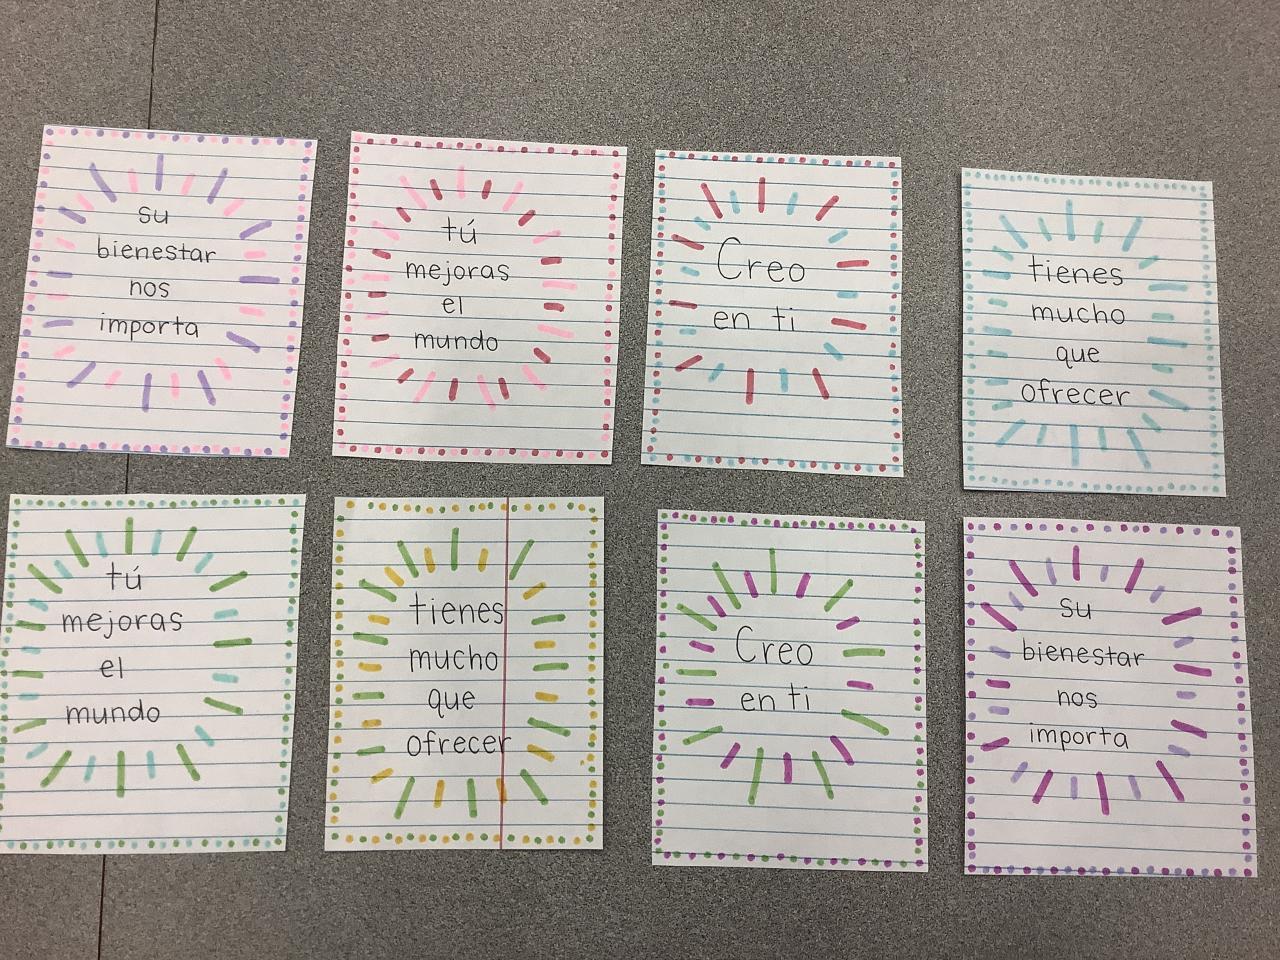 su
bienestar
nos
importa
tú
mejoras
el
mundo
Creo
en ti
tienes
mucho
que
ofrecer
tú
mejoras
el
mundo
tienes
mucho
que
ofrecer
Creo
en ti
su
bienestar
nos
importa